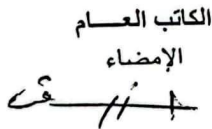 الكاتب العـــام
الإمضاء